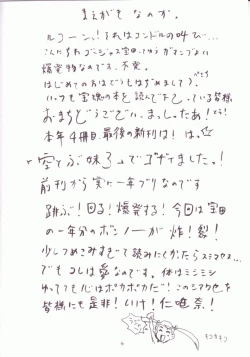 まえがき なのか。
ルコーン!それはコンドルの叫び…
こんちわゴージャス宝田っちゅうガマンづよい
爆発物なのです、不発。
はじめての方はどうもはぢめまして♪ペこり
いつも宝魂の本を読んで下さっている皆様
おまちどうございまーしたあ!どう!
本年4冊目、最後の新刊は!は。
「空とぶ妹3」でゴザイましたー!
前刊から実に一年ブリなのです
跳ぶ!回る!爆発する!今回は宝田
の一年分のボンノーが炸!裂!
少しつめこみすぎて読みにくかったらスミマセン…
でもコレは愛なのです。体はミシミシ
ゆってても心はポカポカだ!このシアワセを
皆様にも是非!いけ!仁唯奈!